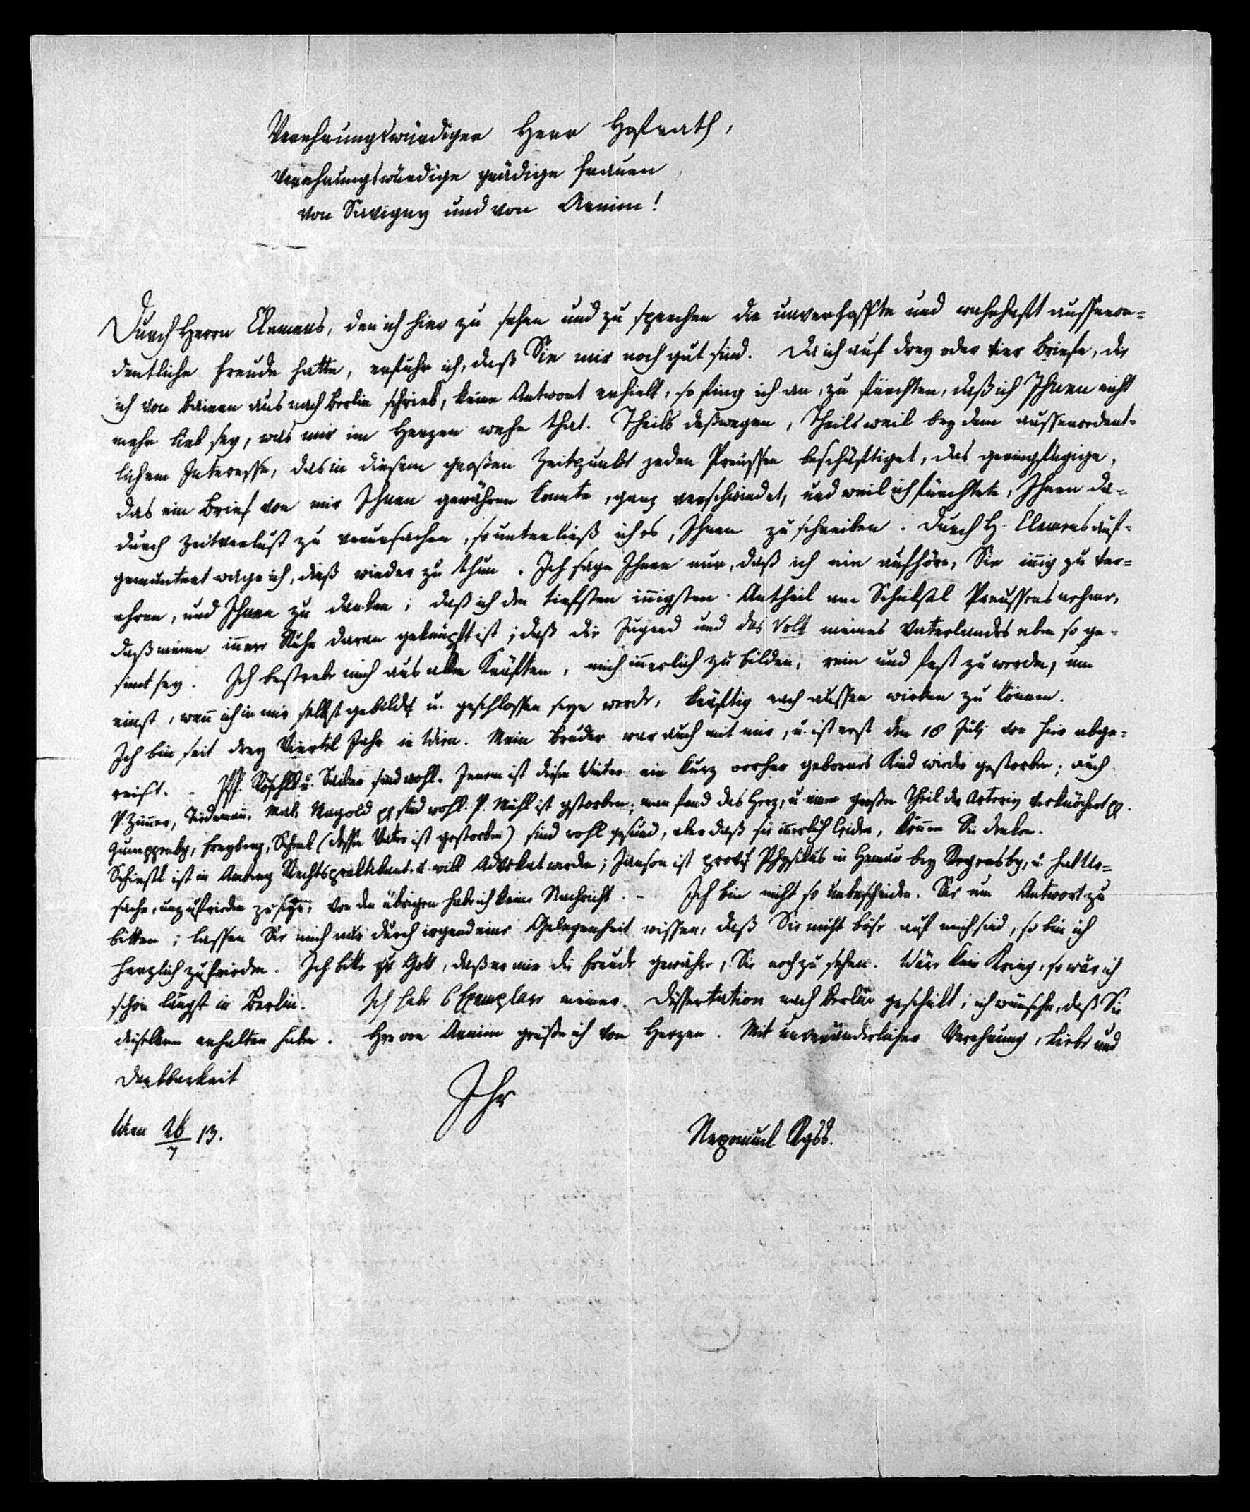 Verehrungswürdiger Herr Hofrath,
Verehrungswürdige gnädige Frauen
von Savigny und von Arnim!
Durch Herrn Clemens, den ich hier zu sehen und zu sprechen die unverhoffte und wahrhaft aussеror=
dentliche Freude hatte, erfuhr ich, daß Sie mir noch gut sind. Da ich auf drey oder vier Briefe, die
ich von Baiern aus nach Berlin schrieb, keine Antwort erhielt, so fing ich an, zu fürchten, daß ich Ihnen nicht
mehr lieb sey, was mir im Herzen wehe that. Theils deßwegen, Theils weil bey dem aussеrordent=
lichen Interesse, das in diesem großen Zeitpunkt jeden Preussen beschäftiget, das geringfügige,
das ein Brief von mir Ihnen gewähren konnte, ganz verschwindet, und weil ich fürchtete, Ihnen da=
durch Zeitverlust zu verursachen, so unterließ ich es, Ihnen zu schreiben. Durch H. Clemens auf=
gemuntert wage ich, dieß wieder zu thun. Ich sage Ihnen nur, daß ich nie aufhöre, Sie innig zu ver=
ehren, und Ihnen zu danken; daß ich den tiefsten innigsten Antheil am Schiksal Preussens nehme,
daß meine innere Ruhe daran geknüpft ist; daß die Jugend und das Volk meines Vaterlandes eben so ge=
sinnt sey. Ich bestrebe mich aus allen Kräften, mich innerlich zu bilden, rein und fest zu werden, um
einst, wenn ich in mir selbst gebildet u. geschlossen seyn werde, kräftig nach aussen wirken zu können.
Ich bin seit drey Viertel Jahr in Wien. Mein Bruder war auch mit mir, u. ist erst den 18 July von hier abge=
reist. - Pf. Röschlb u. Sailer sind wohl. Jenem ist diesen Winter ein kurz vorher gebornes Kind wieder gestorben; auch
P. Zimmer, Tiedemann, Mall, Magold pp sind wohl. P. Michl ist gestorben; man fand das Herz, u. einen großen Theil der Arterien verknöchert pp.
Gumppenbg, Freyberg, Schenk (dessen Vater ist gestorben) sind wohl gesund, aber daß sie innerlich leiden, können Sie denken.
Schiestl ist in Amberg Rechtspraktikant u. will Advokat werden; Janson ist provis. Physikus in Hemau bey Regensbg, u. hat Ur=
sache, unzufrieden zu seyn; von den übrigen habe ich keine Nachricht. - Ich bin nicht so unbescheiden, Sie um Antwort zu
bitten; lassen Sie mich nur durch irgend eine Gelegenheit wissen, daß Sie nicht böse auf mich sind, so bin ich
herzlich zufrieden. Ich bitte zu Gott, daß er mir die Freude gewähre, Sie noch zu sehen. Wäre kein Krieg, so wäre ich
schon längst in Berlin. Ich habe 6 Exemplare meiner Dissertation nach Berlin geschikt; ich wünsche, daß Sie
dieselben erhalten haben. Herrn Arnim grüße ich von Herzen. Mit unveränderlicher Verehrung, Liebe und
Dankbarkeit
Ihr
Wien 26/7 13.
Nepomuck Rgss.